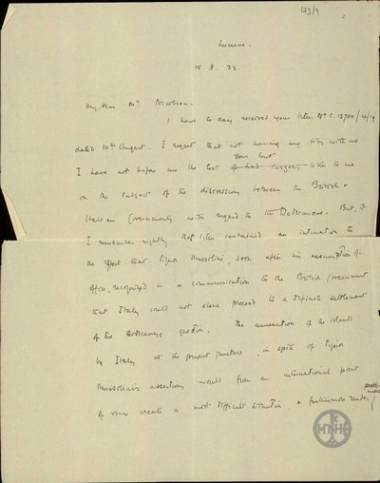 Lucerne.
15. 8. 23.
My dear Mr. Nicolson.
I have to-day received your letter No. C. 13700/
dated 10th August. I regret that not having my files with me
I have not before me the text of your last letter to me
on the subject of the discussion between the British &
Italian Governments with regard to the Dodecanese. But, if
I remember rightly that letter contained an intimation to
the effect that Signor Mussolini, soon after his assumption of
office, recognized in a communication to the British Government
that Italy could not alone proceed to a definite settlement
of the Dodecanese question. The annexation of the islands
by Italy at the present juncture, in spite of Signor
Mussolini's assertions would from an international point
of view create a most difficult situation, & furthermore render